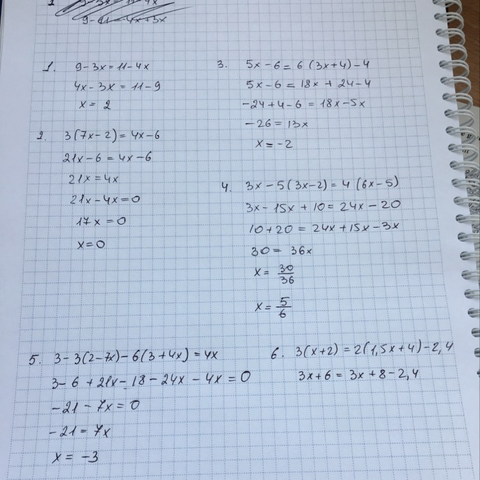 9-11-4x+3x
1. 9-3x=11-4x
4x-3x=11-9
x=2
2. 3(7x-2)=4x-6
21x-6=4x-6
21x=4x
21x-4x=0
17x=0
x=0
3. 5x-6=6(3x+4)-4
5x-6=18x+24-4
-24+4-6=18x-5x
-26=13x
x=-2
4. 3x-5(3x-2)=4(6x-5)
3x-15x+10=24x-20
10+20=24x+15x-3x
30=36x
x=30/36
x=5/6
5. 3-3(2-7x)-6(3+4x)=4x
3-6+21x-18-24x-4x=0
-21-7x=0
-21=7x
x=-3
6. 3(x+2)=2(1,5x+4)-2,4
3x+6=3x+8-2,4